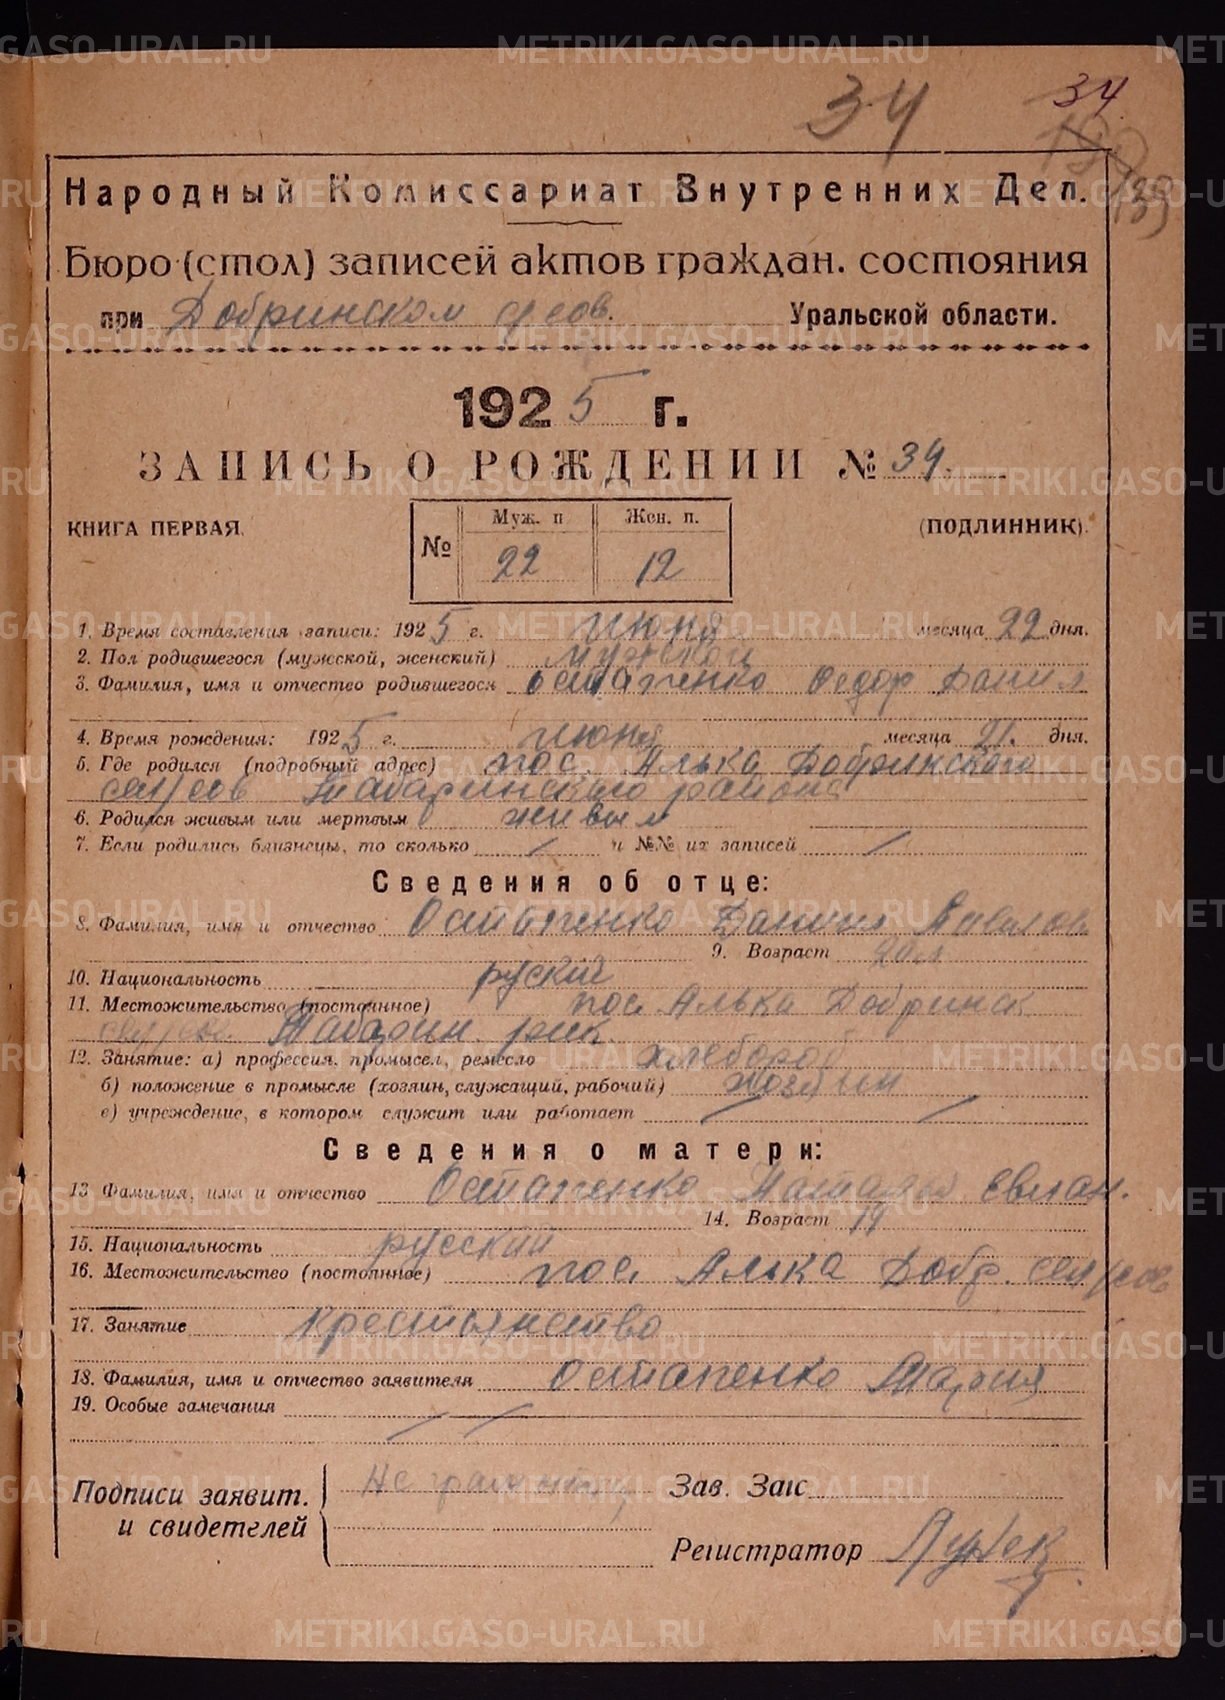 34 34
139
Народный Комиссариат Внутренних Дел.
Бюро (стол) записей актов граждан. состояния
при Добринском с/сов. Уральской области.
1925 г.
ЗАПИСЬ О РОЖДЕНИИ № 34.
КНИГА ПЕРВАЯ. № Муж. п Жен. п. (ПОДЛИННИК).
22 12
1. Время составления записи: 1925 г. июня месяца 22 дня.
2. Пол родившегося (мужской, женский) мужской
3. Фамилия, имя и отчество родившегося Остапенко Федор Данил
4. Время рождения: 1925 г. июня месяца 21. дня.
5. Где родился (подробный адрес) пос. Алька Добринского
сел/сов Табаринского района
6. Родился живым или мертвым живым
7. Если родились близнецы, то сколько / и №№ их записей /
Сведения об отце:
8. Фамилия, имя и отчество Остапенко Данил
9. Возраст
10. Национальность руский
11. Местожительство (постоянное) пос. Алька Добринск
Табарин. рик.
12. Занятие: а) профессия, промысел, ремесло хлебороб
б) положение в промысле (хозяин, служащий, рабочий) хозяин
в) учреждение, в котором служит или работает / /
Сведения о матери:
13 Фамилия, имя и отчество Остапенко
14. Возраст 19
15. Национальность русский
16. Местожительство (постоянное) пос. Алька Добр. сел/сов
17. Занятие крестьянство
18. Фамилия, имя и отчество заявителя Остапенко Мария
19. Особые замечания / /
Подписи заявит. Не грамотн Зав. Загс
и свидетелей
Регистратор
METRIKI.GASO-URAL.RU